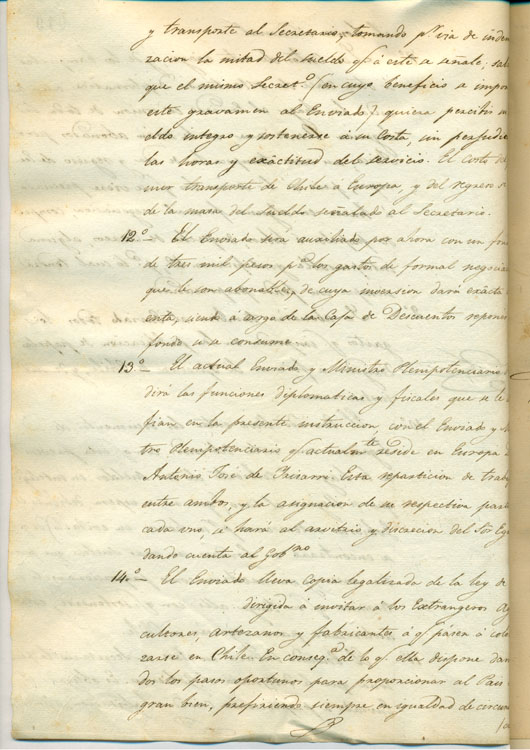 y transporte al Secretario, tomando pr. via de indem
zacion la mitad del sueldo qe. á este se señale; sal
que el mismo Secreto. (en cuyo beneficio se impon
este gravamen al Enviado) quiera percibir su
eldo integro y sostenerse á su costa, sin perjudic
las horas y exâctitud del servicio. El costo de
mer transporte de Chile a Europa, y del regreso s
de la masa del sueldo señalado al Secretario.
12.° — El Enviado sera auxiliado por ahora con un fon
de tres mil pesos pa. los gastos de formal negocia
que le son abonables, de cuya inversion dará exâcta
enta, siendo á cargo de la Caja de Descuentos reponer
fondo si se consume.
13.° — El actual Enviado y Ministro Plenipotenciario
dirá las funciones diplomaticas y fiscales que se le
fian en la presente instruccion, con el Enviado y M
tro Plenipotenciario qe. actualmte. reside en Europa
Antonio José de Yrisarri. Esta reparticion de trab
entre ambos, y la asignacion de su respectiva par
cada uno, se hará al arvitrio y discrecion del Sor
dando cuenta al Gobno.
14.° — El Enviado lleva copia legalizada de la ley de
dirigida á invitar á los Extrangeros Ag
cultores, artezanos y fabricantes, á qe. pásen á colo
zarse en Chile. En conseqa. de lo qe. ella dispone dan
dos los pasos oportunos para proporcionar al Pais
gran bien, prefiriendo siempre en igualdad de circun